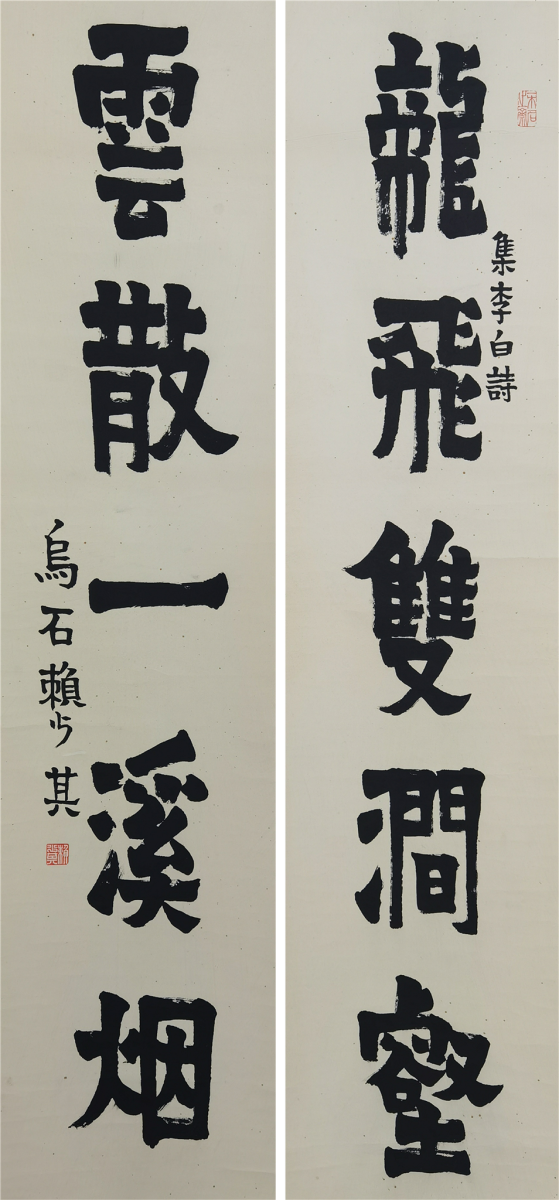 龍飛雙澗壑
集李白詩
雲散一溪烟
烏石賴少其